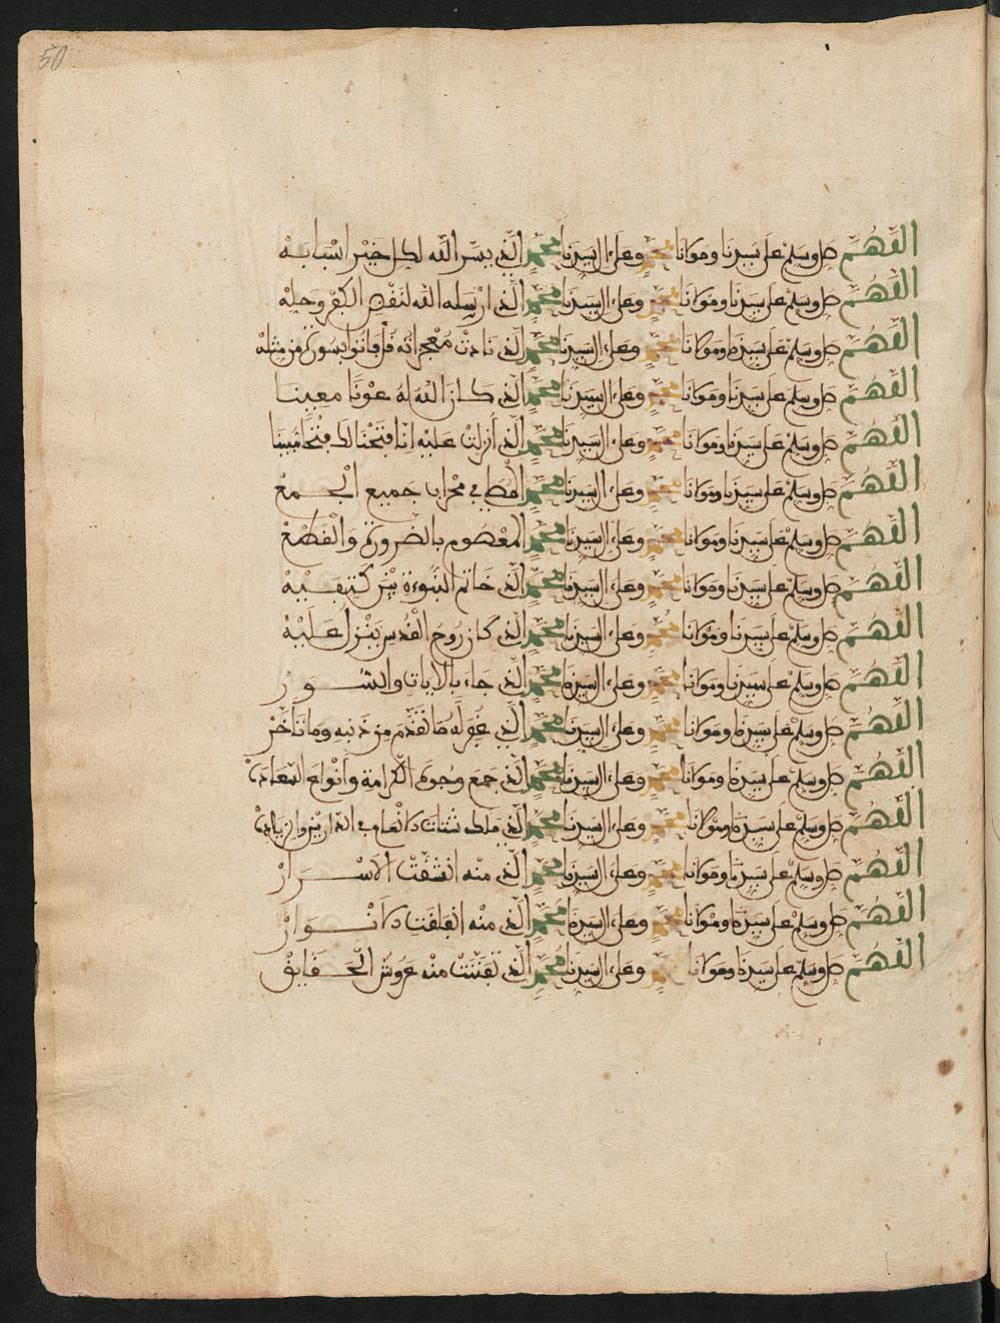 50
اللهم صل وسلم على سيدنا ومولانا محمد وعلى ءال سيدنا محمد الذي يسر الله لكل خير اسبابه
اللهم صل وسلم على سيدنا ومولانا محمد وعلى ءال سيدنا محمد الذي ارسله الله لنقض الكفر وحله
اللهم صل وسلم على سيدنا ومولانا محمد وعلى ءال سيدنا محمد الذي نادت معجزاته قل فاتوا بسورة من مثله
اللهم صل وسلم على سيدنا ومولانا محمد وعلى ءال سيدنا محمد الذي كان الله له عونا معينا
اللهم صل وسلم على سيدنا ومولانا محمد وعلى ءال سيدنا محمد الذي أنزلت عليه انا فتحنا لك فتحا مبينا
اللهم صل وسلم على سيدنا ومولانا محمد وعلى ءال سيدنا محمد في محراب جميع الجمع
اللهم صل وسلم على سيدنا ومولانا محمد وعلى ءال سيدنا محمد المعصوم بالضرورة والقطع
اللهم صل وسلم على سيدنا ومولانا محمد وعلى ءال سيدنا محمد الذي خاتم النبوءة بين كتفيه
اللهم صل وسلم على سيدنا ومولانا محمد وعلى ءال سيدنا محمد الذي كان روح القدس ينزل عليه
اللهم صل وسلم على سيدنا ومولانا محمد وعلى ءال سيدنا محمد الذي جاء بالايات والسور
اللهم صل وسلم على سيدنا ومولانا محمد وعلى ءال سيدنا محمد الذي غفر له ما تقدم من ذنبه وما تأخر
اللهم صل وسلم على سيدنا ومولانا محمد وعلى ءال سيدنا محمد الذي جمع وجوه الكرامة وأنواع السعادة
اللهم صل وسلم على سيدنا ومولانا محمد وعلى ءال سيدنا محمد الذي ملك شتات الانعام في الدارين والزيادة
اللهم صل وسلم على سيدنا ومولانا محمد وعلى ءال سيدنا محمد الذي منه انشقت الاسرار
اللهم صل وسلم على سيدنا ومولانا محمد وعلى ءال سيدنا محمد الذي منه انفلقت الانوار
اللهم صل وسلم على سيدنا ومولانا محمد وعلى ءال سيدنا محمد الذي منه عروش الحقايق